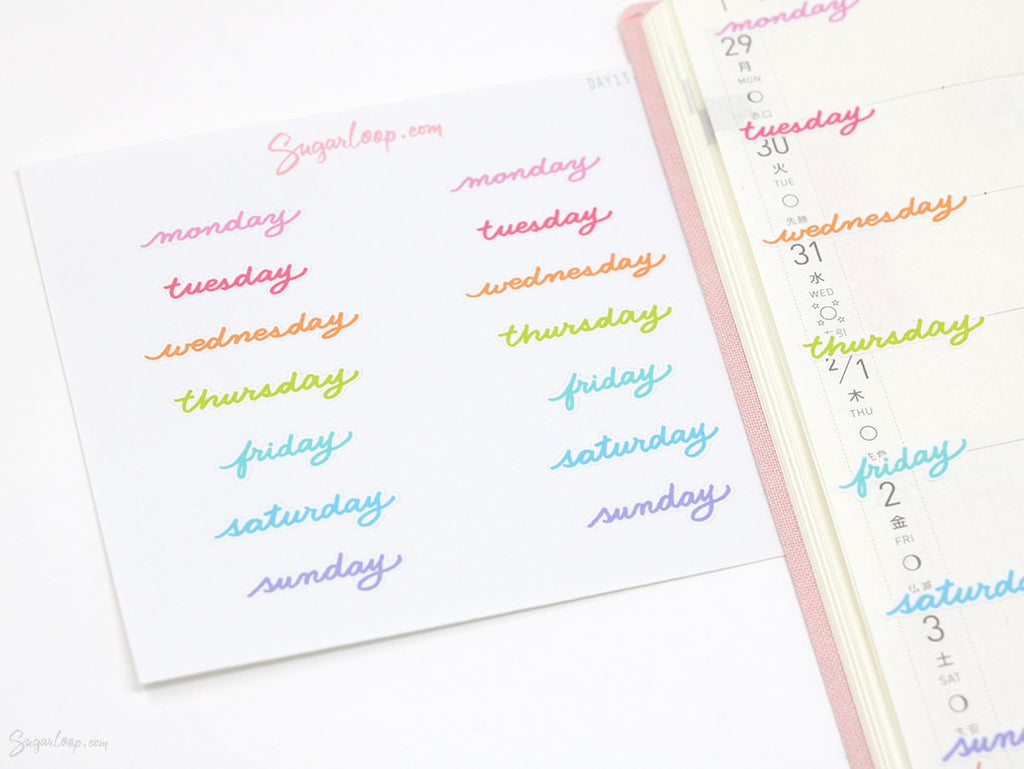 DAY13
Sugarloop.com
monday
tuesday
wednesday
thursday
friday
saturday
sunday
monday
tuesday
wednesday
thursday
friday
saturday
sunday
monday
29
月
MON
tuesday
30
火
TUE
先勝
wednesday
31
水
WED
thursday
2/1
木
THU
friday
2
金
FRI
仏滅
saturda
3
土
SAT
大安
sun
Sugarloop.com